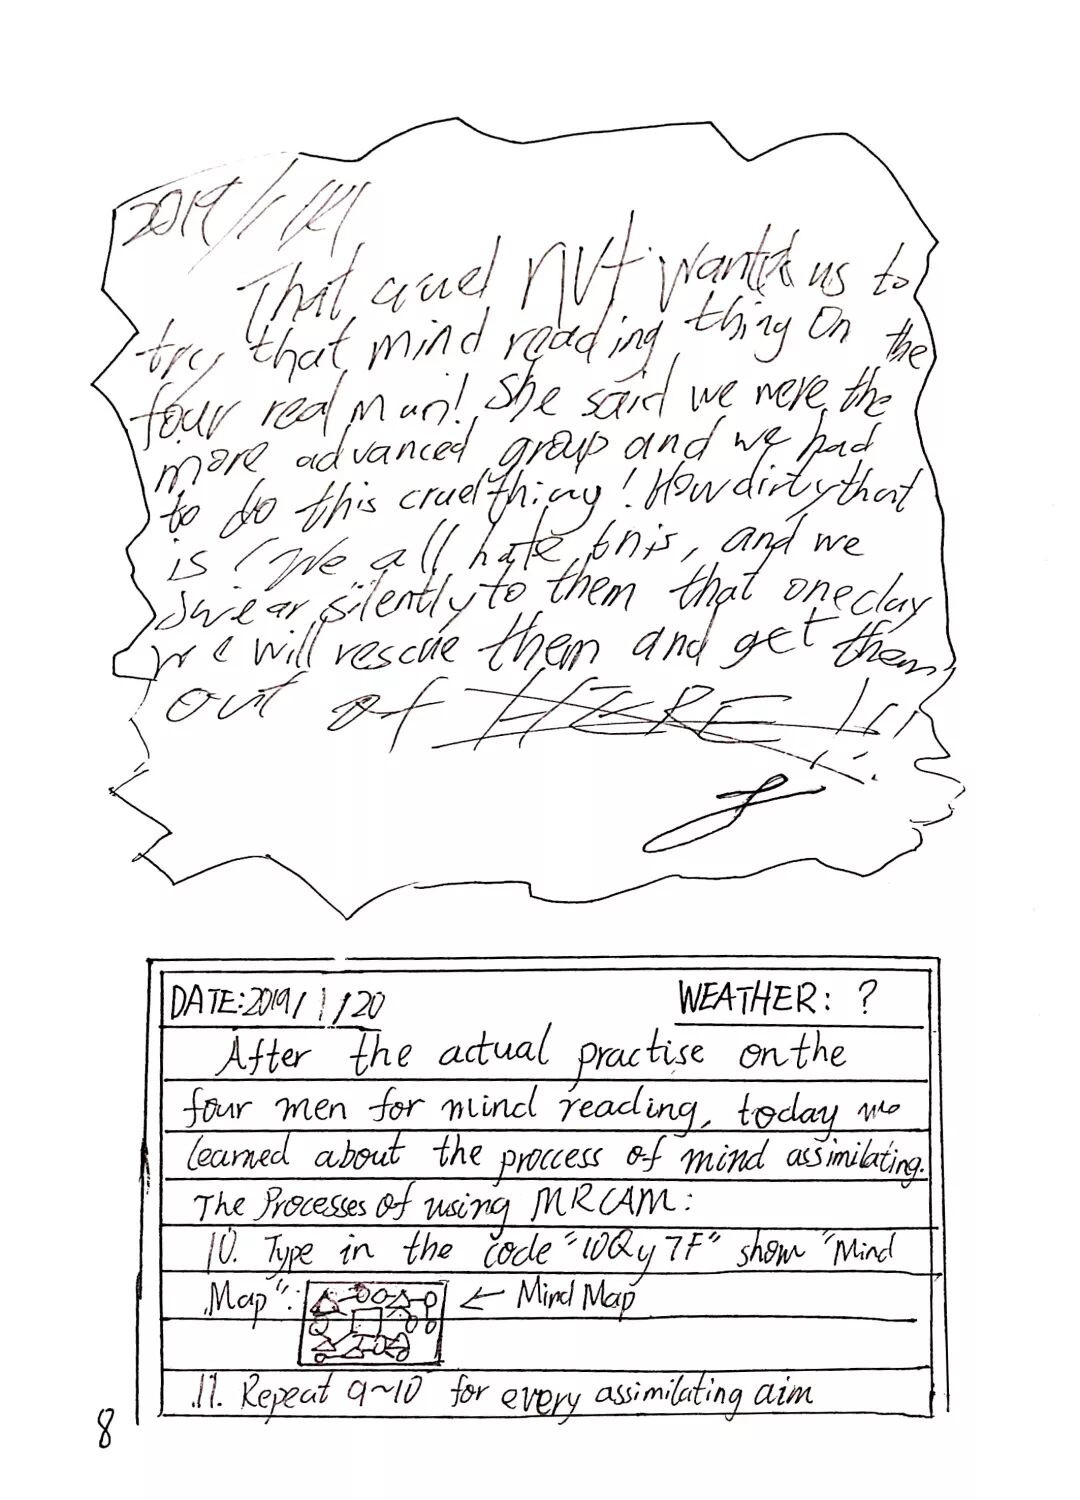 2019/1/14
That cruel nut wanted us to
try that mind reading thing on the
four real man! She said we were the
more advanced group and we had
to do this cruel thing! How dirty that
is! We all hate this, and we
swear silently to them that one day
we will rescue them and get them
out of HERE!!!
DATE:2019/1/20 WEATHER: ?
After the actual practise on the
four men for mind reading, today we
learned about the proccess of mind assimilating.
The Processes of using MRCAM:
10. Type in the code "10Qy7F" show "Mind
Map": ← Mind Map
11. Repeat 9~10 for every assimilating aim
8